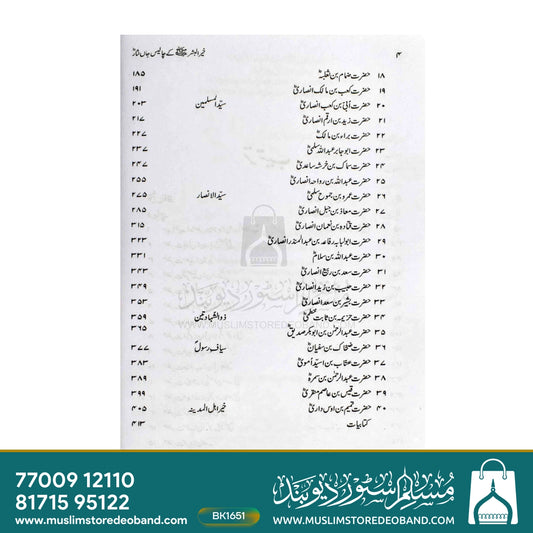 ۴ خیر البشر ﷺ کے چالیس جاں نثارؓ
۱۸ حضرت ضمام بن ثعلبہؓ ۱۸۵
۱۹ حضرت کعب بن مالک انصاریؓ ۱۹۱
۲۰ حضرت اُبَیّ بن کعب انصاریؓ سیّد المسلمین ۲۰۳
۲۱ حضرت زید بن ارقم انصاریؓ ۲۱۷
۲۲ حضرت براء بن مالکؓ ۲۲۷
۲۳ حضرت ابو جابر عبداللہ سلمیؓ ۲۳۷
۲۴ حضرت سماک بن خرشہ ساعدیؓ ۲۴۷
۲۵ حضرت عبداللہ بن رواحہ انصاریؓ ۲۵۵
۲۶ حضرت عمرو بن جموح سلمیؓ سیّد الانصار ۲۷۵
۲۷ حضرت معاذ بن جبل انصاریؓ ۲۸۵
۲۸ حضرت قتادہ بن نعمان انصاریؓ ۳۱۵
۲۹ حضرت ابولبابہ رفاعہ بن عبدالمنذر انصاریؓ ۳۲۳
۳۰ حضرت عبداللہ بن سلامؓ ۳۳۱
۳۱ حضرت سعد بن ربیع انصاریؓ ۳۴۳
۳۲ حضرت حبیب بن زید انصاریؓ ۳۴۹
۳۳ حضرت بشیر بن سعد انصاریؓ ۳۵۳
۳۴ حضرت خزیمہ بن ثابت خطمیؓ ذوالشہادتین ۳۵۹
۳۵ حضرت عبدالرحمٰن بن ابوبکر صدیقؓ ۳۶۵
۳۶ حضرت ضحاک بن سفیانؓ سیافِ رسولؐ ۳۷۷
۳۷ حضرت عتاب بن اَسید اُمویؓ ۳۸۳
۳۸ حضرت عبدالرحمٰن بن سمرہؓ ۳۸۹
۳۹ حضرت قیس بن عاصم منقریؓ ۳۹۹
۴۰ حضرت تمیم بن اوس داریؓ خیر اہل المدینہ ۴۰۵
کتابیات ۴۱۳
مسلم سٹور دیوبند
WWW.MUSLIMSTOREDEOBAND.COM
77009 12110
81715 95122
www.muslimstoredeoband.com
BK1651
مسلم سٹور دیوبند
WWW.MUSLIMSTOREDEOBAND.COM